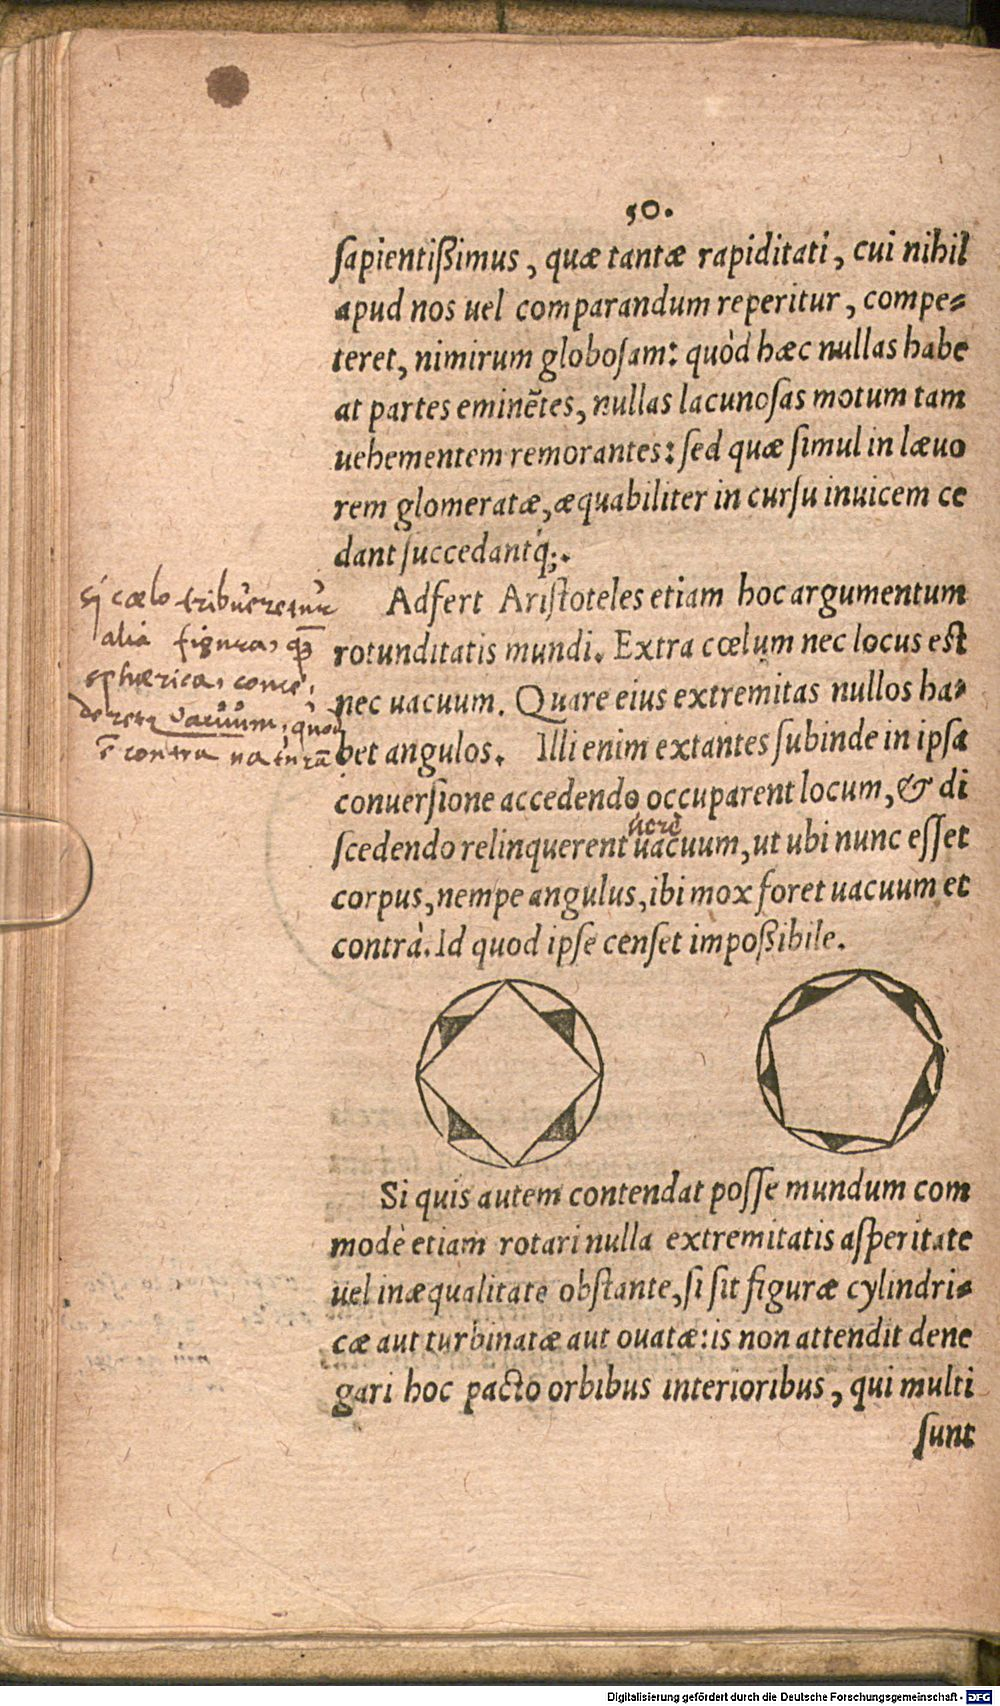 50.
sapientißimus, quæ tantæ rapiditati, cui nihil
apud nos uel comparandum reperitur, compe=
teret, nimirum globosam: quòd hæc nullas habe
at partes eminẽtes, nullas lacunosas motum tam
uehementem remorantes: sed quæ simul in læuo
rem glomeratæ, æquabiliter in cursu inuicem ce
dant succedantq;.
si cœlo tribueretur
alia figura, qp̄
sphærica, conce,
deretr vacuum, quod
ē contra naturā
Adfert Aristoteles etiam hoc argumentum
rotunditatis mundi. Extra cœlum nec locus est
nec uacuum. Quare eius extremitas nullos ha=
bet angulos. Illi enim extantes subinde in ipsa
conuersione accedendo occuparent locum, & di
uerè
scedendo relinquerent uacuum, ut ubi nunc esset
corpus, nempe angulus, ibi mox foret uacuum et
contrà. Id quod ipse censet impoßibile.
Si quis autem contendat posse mundum com
modè etiam rotari nulla extremitatis asperitate
uel inæqualitate obstante, si sit figuræ cylindri=
cæ aut turbinatæ aut ouatæ: is non attendit dene
gari hoc pacto orbibus interioribus, qui multi
sunt
Digitalisierung gefördert durch die Deutsche Forschungsgemeinschaft - DFG